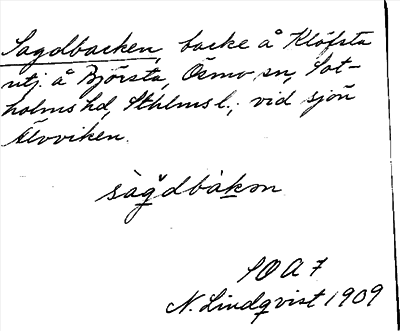 Sagdbacken, backe å Klöfsta
utj. å Björsta, Ösmo sn, Sot-
holms hd, Sthlms l., vid sjön
Älvviken.
sàg̊dbàkən
SOA 7
N. Lindqvist 1909